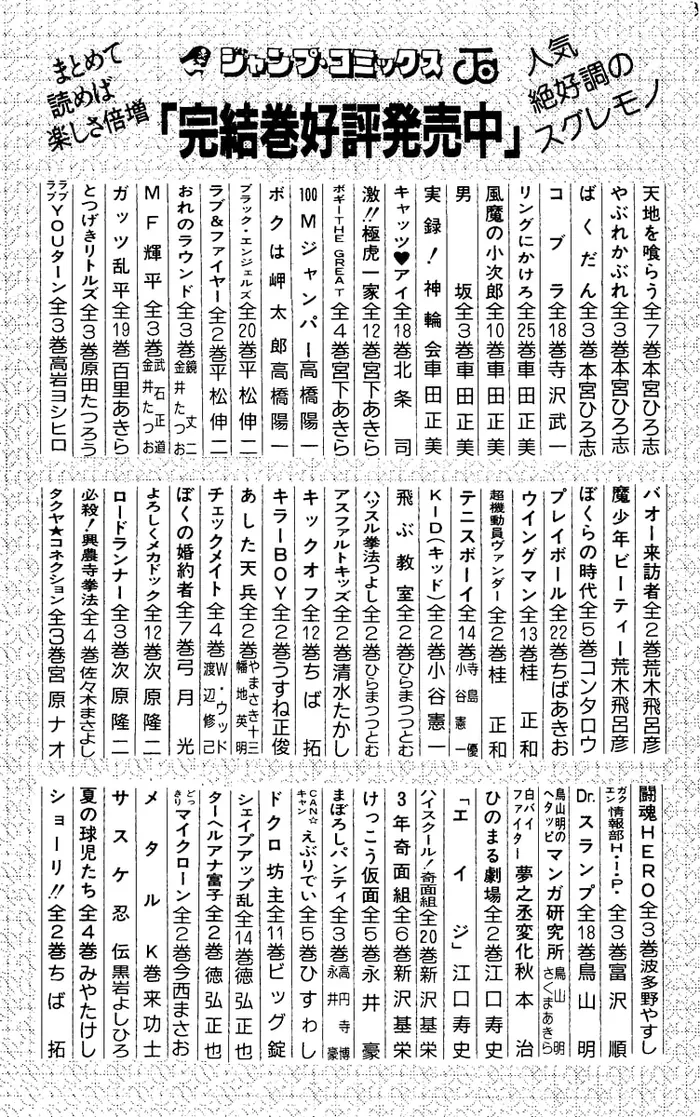 まとめて
読めば
楽しさ倍増
ジャンプ・コミックス
人気
絶好調の
スグレモノ
「完結巻好評発売中」
天地を喰らう全7巻本宮ひろ志
やぶれかぶれ全3巻本宮ひろ志
ばくだん全3巻本宮ひろ志
コブラ全18巻寺沢武一
リングにかけろ全25巻車田正美
風魔の小次郎全10巻車田正美
男坂全3巻車田正美
実録!神輪会車田正美
キャッツ♥アイ全18巻北条司
激!!極虎一家全12巻宮下あきら
ボギーTHE GREAT全4巻宮下あきら
100Mジャンパー高橋陽一
ボクは岬太郎高橋陽一
ブラック・エンジェルズ全20巻平松伸二
ラブ&ファイヤー全2巻平松伸二
おれのラウンド全3巻鏡丈二金井たつお
MF輝平全3巻武石正道金井たつお
ガッツ乱平全19巻百里あきら
とつげきリトルズ全3巻原田たつろう
ラブラブYOUターン全3巻高岩ヨシヒロ
バオー来訪者全2巻荒木飛呂彦
魔少年ビーティー荒木飛呂彦
ぼくらの時代全5巻コンタロウ
プレイボール全22巻ちばあきお
ウイングマン全13巻桂正和
超機動員ヴァンダー全2巻桂正和
テニスボーイ全14巻寺島優小谷憲一
KID(キッド)全2巻小谷憲一
飛ぶ教室全2巻ひらまつつとむ
ハッスル拳法つよし全2巻ひらまつつとむ
アスファルトキッズ全2巻清水たかし
キックオフ全12巻ちば拓
キラーBOY全2巻うすね正俊
あした天兵全2巻やまさき十三幡地英明
チェックメイト全4巻W・ウッド渡辺修己
ぼくの婚約者全7巻弓月光
よろしくメカドック全12巻次原隆二
ロードランナー全3巻次原隆二
必殺!興農寺拳法全4巻佐々木まさよし
タクヤ★コネクション全3巻宮原ナオ
闘魂HERO全3巻波多野やすし
ガクエン情報部H・I・P・全3巻富沢順
Dr.スランプ全18巻鳥山明
鳥山明のヘタッピマンガ研究所鳥山明さくまあきら
白バイファイター夢之丞変化秋本治
ひのまる劇場全2巻江口寿史
「エイジ」江口寿史
ハイスクール!奇面組全20巻新沢基栄
3年奇面組全6巻新沢基栄
けっこう仮面全5巻永井豪
まぼろしパンティ全3巻高円寺博永井豪
CAN☆キャンえぶりでい全5巻ひすわし
ドクロ坊主全11巻ビッグ錠
シェイプアップ乱全14巻徳弘正也
ターヘルアナ富子全2巻徳弘正也
どっきりマイクローン全2巻今西まさお
メタルK巻来功士
サスケ忍伝黒岩よしひろ
夏の球児たち全4巻みやたけし
ショーリ!!全2巻ちば拓